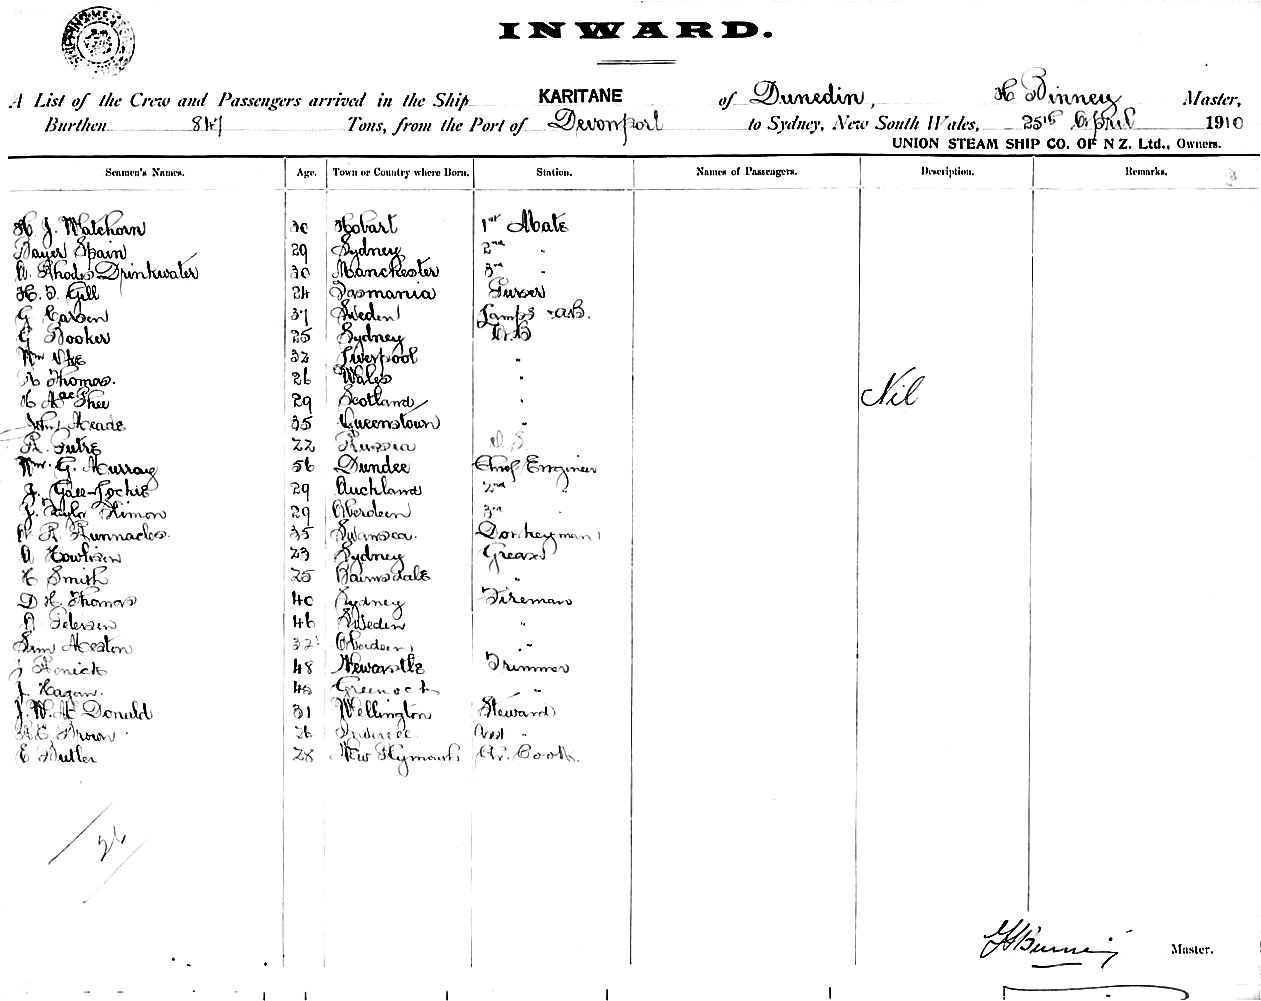 INWARD.
A List of the Crew and Passengers arrived in the Ship KARITANE of Dunedin, H Binney Master,
Burthen 847 Tons, from the Port of Devonport to Sydney, New South Wales, 25th April 1910
UNION STEAM SHIP CO. OF N Z. Ltd., Owners.
Seamen's Names. Age. Town or Country where Born. Station. Names of Passengers. Description. Remarks.
H. J. Watchorn 30 Hobart 1st Mate
Bayer Spain 29 Sydney 2nd "
A. Rhodes Drinkwater 30 Manchester 3rd "
H. Gill 24 Tasmania Purser
G Carsen 37 Sweden Lamps - AB.
G Booker 25 Sydney A.B
Wm 32 Liverpool "
A Thomas. 26 Wales "
H MacPhee 29 Scotland "
John Meade 35 Queenstown "
R. Putre 22 Russia O S
Wm. G. Murray 56 Dundee Chief Engineer
J. Gall-Lockie 29 Auckland 2nd "
J. Taylor Simon 29 Aberdeen 3rd "
R. Runnacles. 35 Swansea. Donkeyman
A 23 Sydney Greaser
H Smith 25 Bairnsdale "
D H. Thomas 40 Sydney Fireman
A Petersen 46 Sweden "
Sam Meston 32 Aberdeen "
J Renick 48 Newcastle Trimmer
J. Hagan. 40 Greenock "
J. W. McDonald 31 Wellington Steward
Brown 26 Dundee Asst "
E Butler 28 New Plymouth Ch. Cook.
Nil
26
H Binney Master.